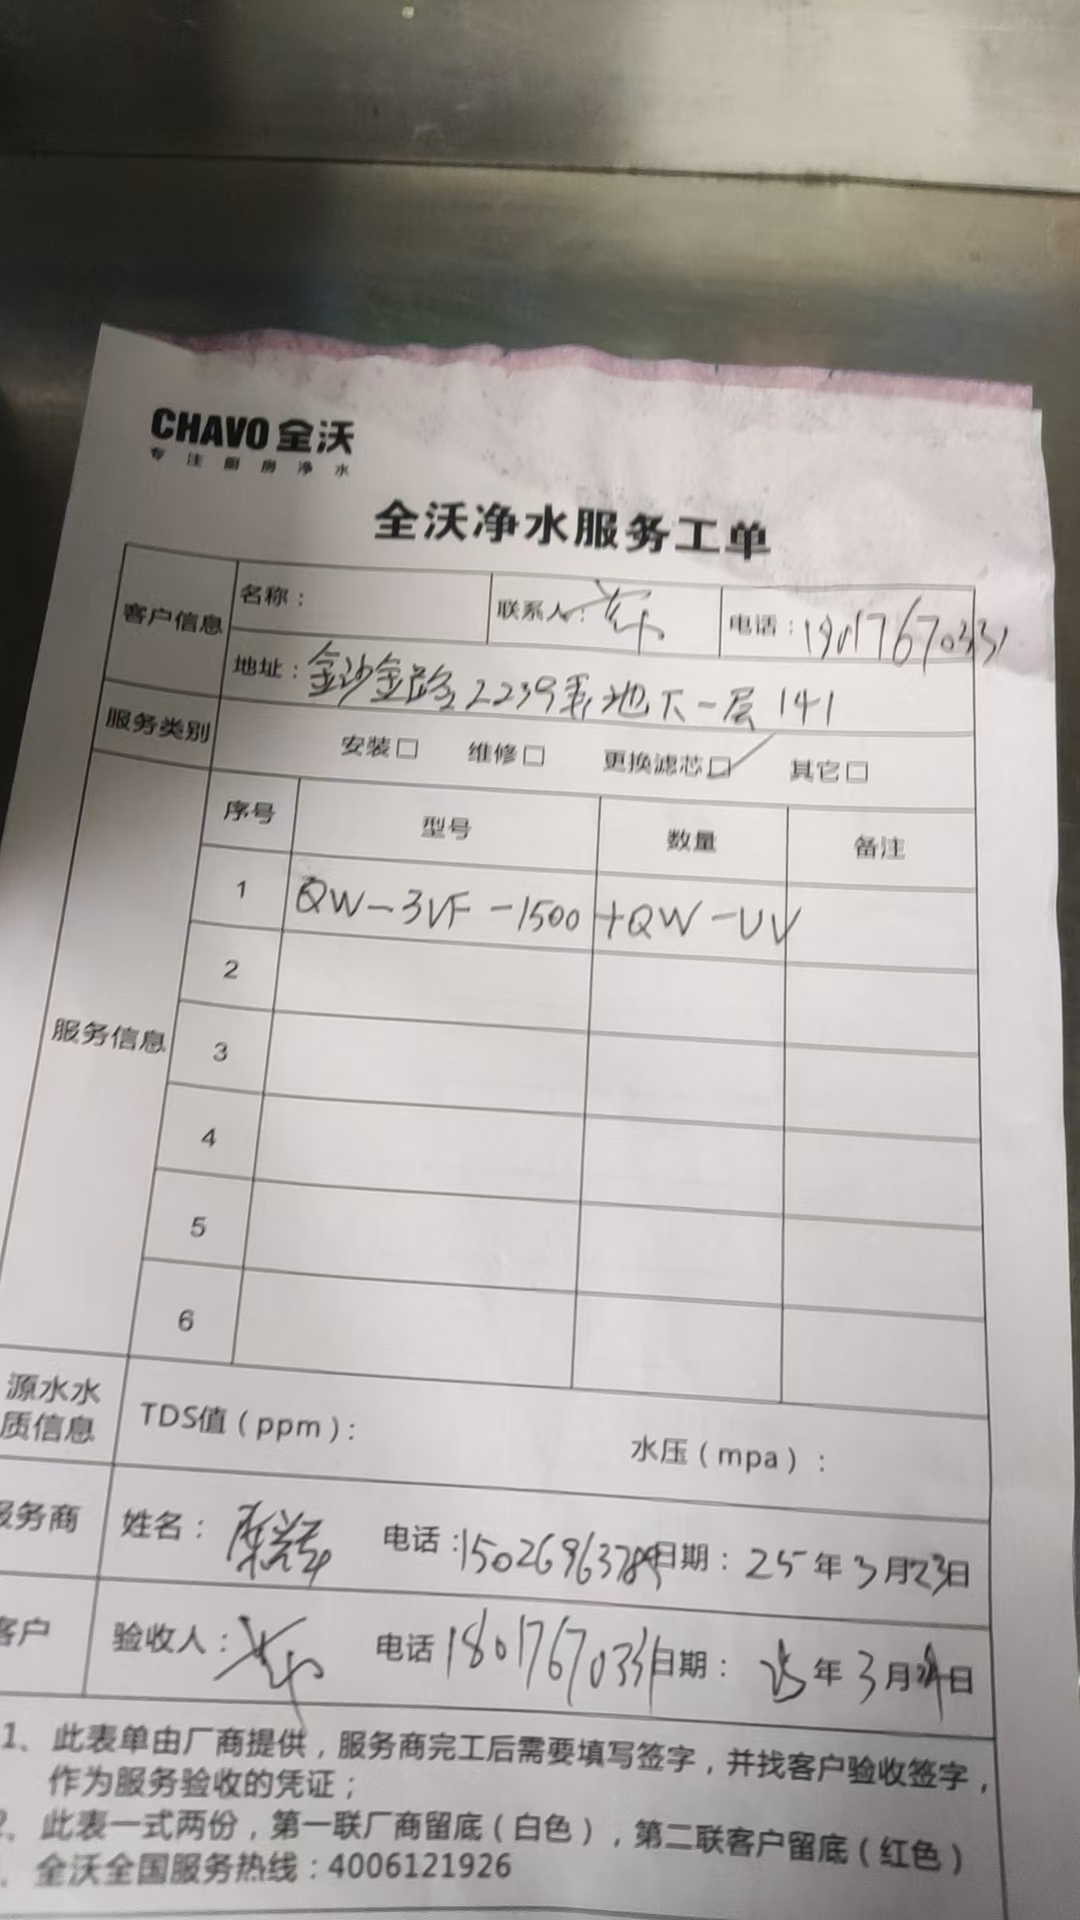 CHAVO 全沃
专注厨房净水
全沃净水服务工单
客户信息 名称： 联系人： 电话：18017670331
地址：金沙金路2239弄地下一层141
服务类别 安装□ 维修□ 更换滤芯□✓ 其它□
序号 型号 数量 备注
1 QW-3VF-1500+QW-UV
2
服务信息 3
4
5
6
源水水质信息 TDS值（ppm）： 水压（mpa）：
服务商 姓名： 电话：15026963789 日期：25年3月23日
客户 验收人： 电话 18017670331 日期：25年3月 日
1、此表单由厂商提供，服务商完工后需要填写签字，并找客户验收签字，
作为服务验收的凭证；
2、此表一式两份，第一联厂商留底（白色），第二联客户留底（红色）
、全沃全国服务热线：4006121926